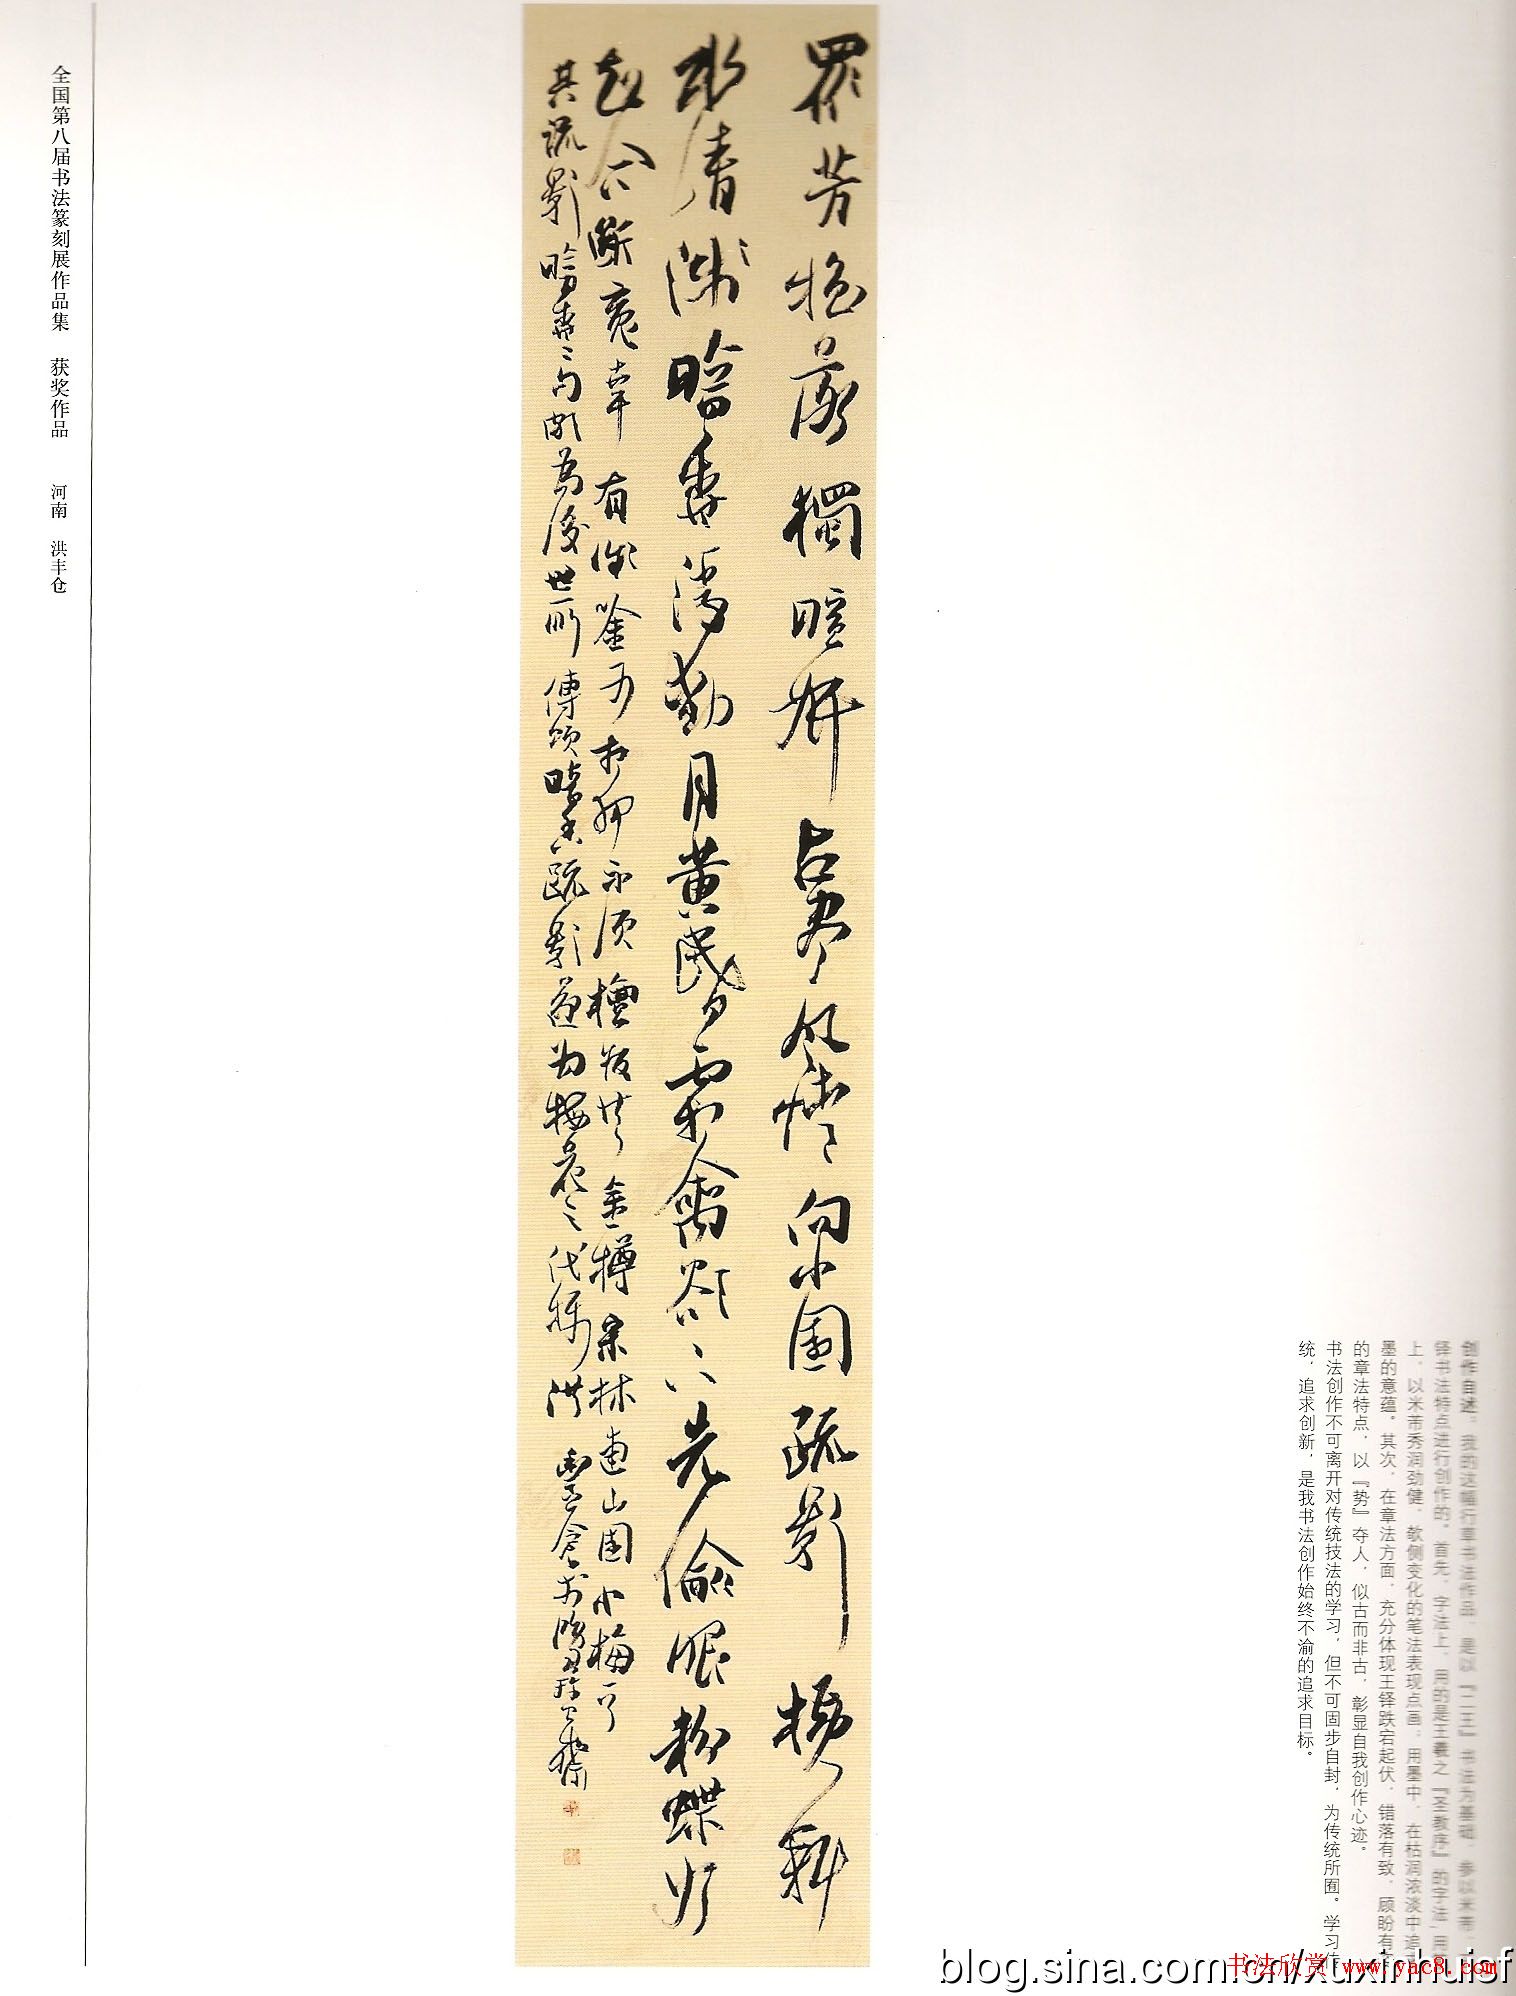 创作自述：我的这幅行草书法作品，是以『二王』书法为基础，参以米芾、
铎书法特点进行创作的。首先，字法上，用的是王羲之『圣教序』的字法，用
上，以米芾秀润劲健、欹侧变化的笔法表现点画；用墨中，在枯润浓淡中追
墨的意蕴。其次，在章法方面，充分体现王铎跌宕起伏、错落有致、顾盼有
的章法特点，以『势』夺人，似古而非古，彰显自我创作心迹。
书法创作不可离开对传统技法的学习，但不可固步自封，为传统所囿。学习传
统，追求创新，是我书法创作始终不渝的追求目标。
眾芳搖落獨暄妍占盡風情向小園疏影橫斜
水清淺暗香浮動月黃昏霜禽欲下先偷眼粉蝶如
知合斷魂幸有微吟可相狎不須檀板共金樽宋林逋山園小梅一首
其疏影暗香二句頗為後世所傳頌暗香疏影遂为梅花之代稱洪豐倉於
全国第八届书法篆刻展作品集 获奖作品 河南 洪丰仓
blog.sina.com.cn/xuxinhuisf
书法欣赏 www.yac8.com